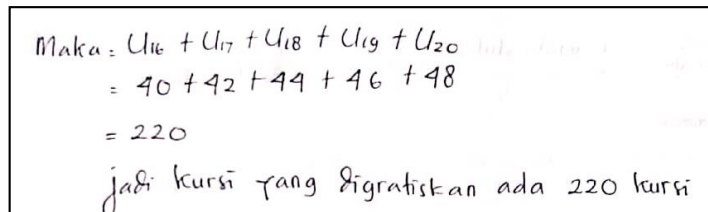 Maka : U16 + U17 + U18 + U19 + U20
= 40 + 42 + 44 + 46 + 48
= 220
jadi kursi yang digratiskan ada 220 kursi